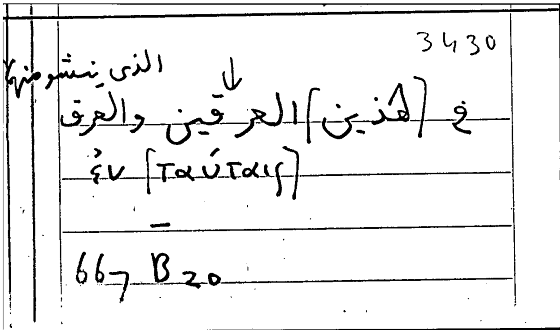 3430
الذى ينشو منها
↓
فى [هذين] العرقين والعرق
ἐν [ταύταις]
667 B 20